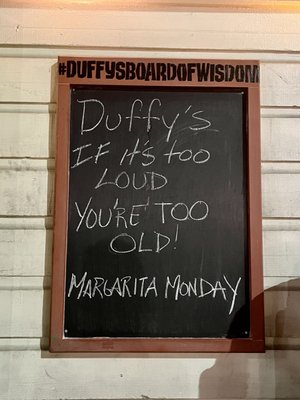 #DUFFYSBOARDOFWISDOM
Duffy's
IF it's too
LOUD
YOU'RE TOO
OLD!
MARGARITA MONDAY